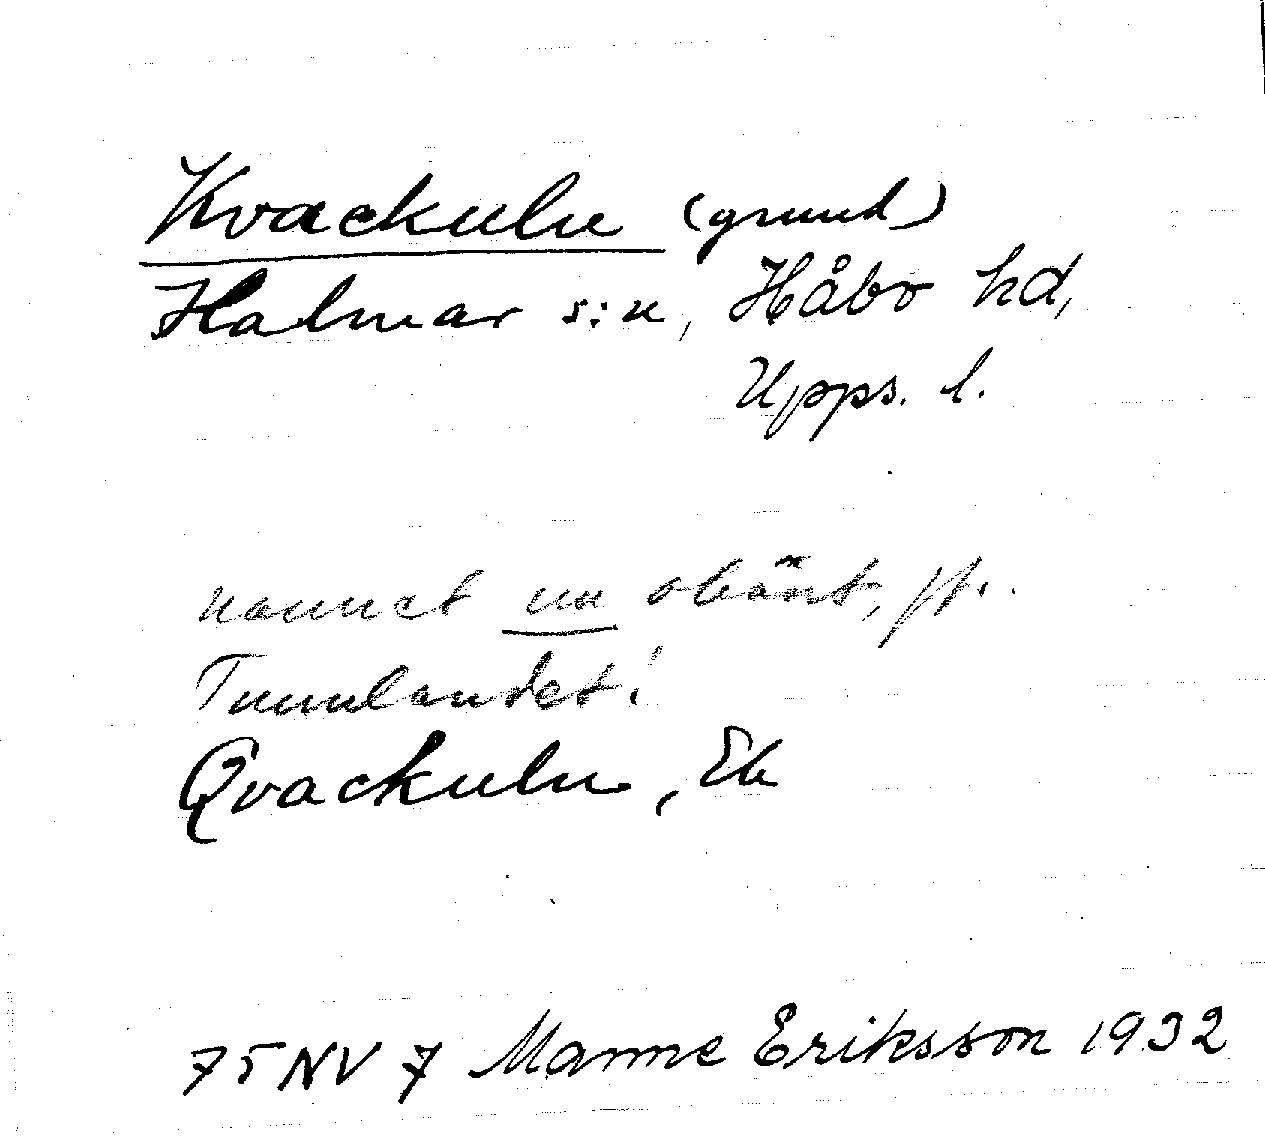 Kvackulu (grund)
Kalmar s:n, Håbo hd,
Upps. l.
namnet nu okänt, jf.
Tunnlandet!
Qvackulu, Ek
75 NV 7 Manne Eriksson 1932